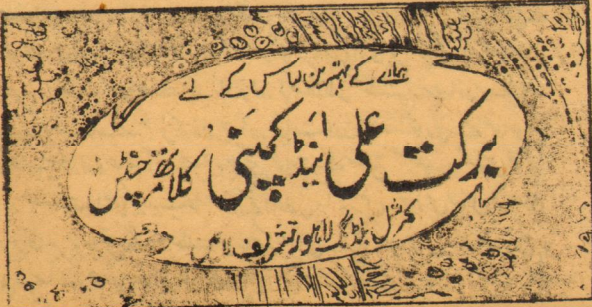 ہمارے کے بہترین لباس کے لئے
برکت علی اینڈ کمپنی کلاتھ مرچنٹس
کمرشل بلڈنگ لاہور تشریف لائیں